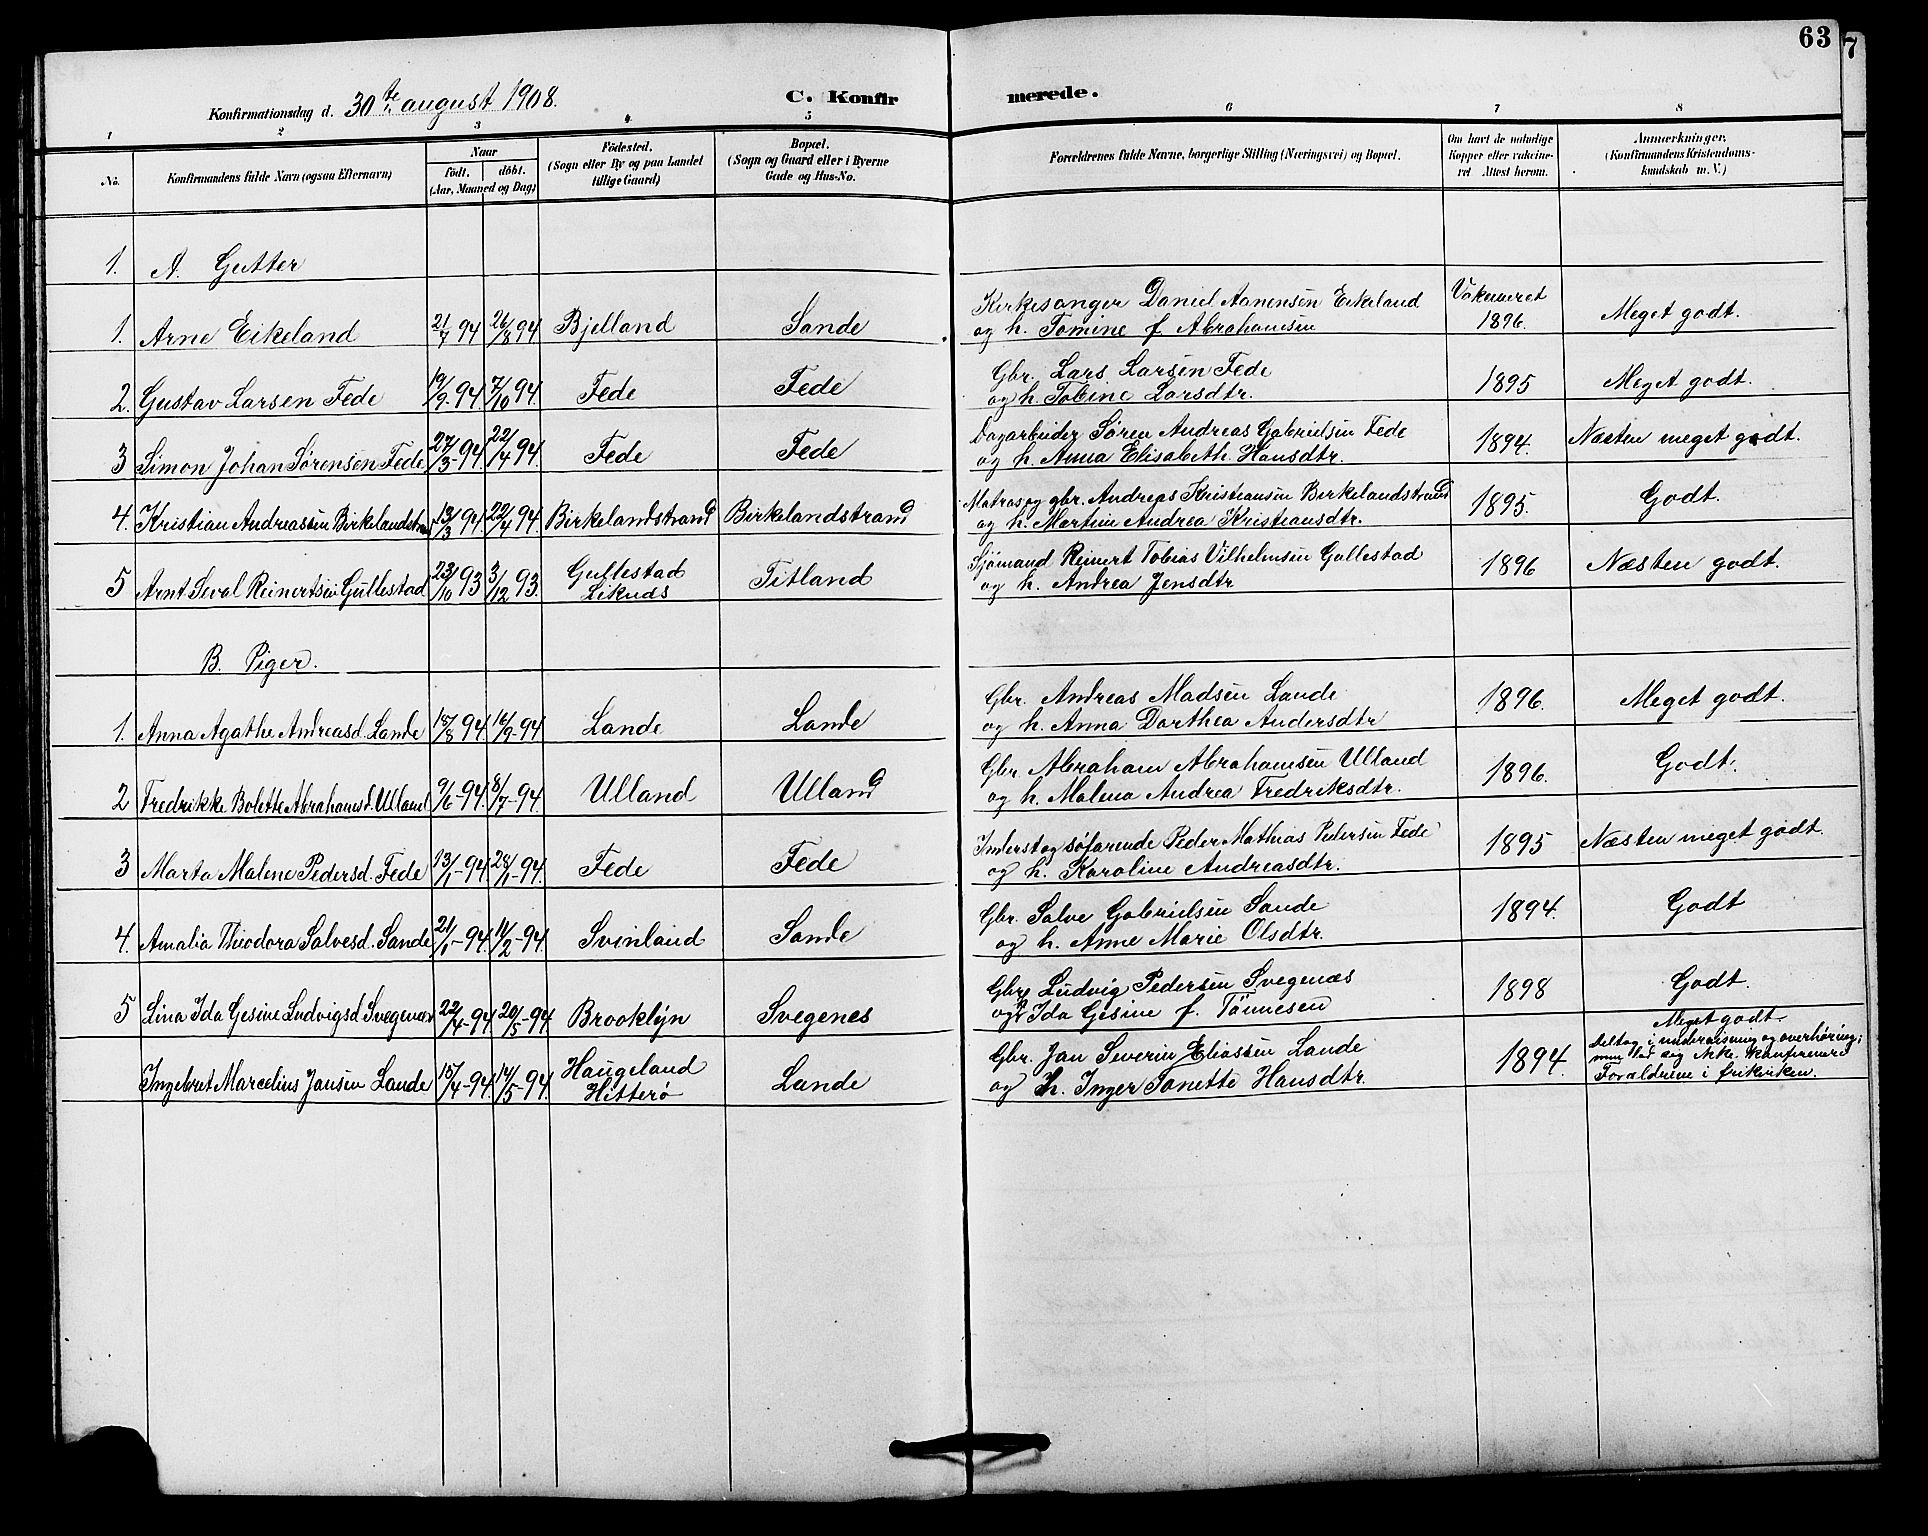 63
7
Konfirmationsdag d. 30te august 1908.
C. Konfir
merede.
1 2 3 4 5 6 7 8
No.
Konfirmandens fulde Navn (ogsaa Efternavn)
Naar
födt. döbt.
(Aar, Maaned og Dag)
Födested.
(Sogn eller By og paa Landet
tillige Gaard)
Bopæl.
(Sogn og Gaard eller i Byerne
Gade og Hus-No.
Forældrenes fulde Navne, borgerlige Stilling (Næringsvei) og Bopæl.
Om havt de naturlige
Kopper eller vakcine-
ret Attest herom.
Anmærkninger.
(Konfirmandens Kristendoms-
kundskab m. V.)
1. A. Gutter
Kirkesanger Daniel Aanensen Eikeland Vakcineret
1. Arne Eikeland 21/7 94 26/8 94 Bjelland Sande og h. Tomine f. Abrahamsen 1896. Meget godt.
Gbr. Lars Larsen Fede
2. Gustav Larsen Fede 19/9 94. 7/10 94. Fede Fede og h. Tobine Larsdtr. 1895 Meget godt.
Dagarbeider Søren Andreas Gabrielsen Fede
3 Simon Johan Sørensen Fede 27/3-94 22/4 94. Fede Fede og h. Anna Elisabeth Hansdtr. 1894. Næsten meget godt.
Matros og gbr. Andreas Kristiansen Birkelandstrand
4. Kristian Andreassen Birkelandstrand 13/3 94 22/4 94. Birkelandstrand Birkelandstrand og h. Martine Andrea Kristiansdtr. 1895. Godt.
Gullestad Sjømand Reinert Tobias Vilhelmsen Gullestad
5 Arnt Seval Reinertsen Gullestad 23/10 93 3/12 93. Liknes Titland og h. Andrea Jensdtr 1896 Næsten godt.
B. Piger.
Gbr. Andreas Madsen Lande
1. Anna Agathe Andreasd. Lande 18/8 94. 16/9-94 Lande Lande og h. Anna Dorthea Andersdtr 1896. Meget godt.
Gbr. Abraham Abrahamsen Ulland
2 Fredrikke Bolette Abrahamsd. Ulland 9/6-94. 8/7-94. Ulland Ulland og h. Malena Andrea Fredriksdtr. 1896. Godt.
Inderst og søfarende Peder Mathias Pedersen Fede
3 Marta Malene Pedersd. Fede 13/1-94 28/1-94. Fede Fede og h. Karoline Andreasdtr. 1895 Næsten meget godt.
Gbr. Salve Gabrielsen Sande
4. Amalia Theodora Salvesd. Sande 21/1-94. 11/2-94. Svinland Sande og h. Anne Marie Olsdtr. 1894. Godt
Gbr. Ludvig Pedersen Svegenæs
5 Lina Ida Gesine Ludvigsd Svegenæs 22/4-94. 20/5-94 Brooklyn Svegenes og h. Ida Gesine f. Tönnesen 1898 Godt.
Meget godt.
Haugeland Gbr. Jan Severin Eliassen Lande Deltog i undervisning og overhöring;
men lod sig ikke konfirmere
Ingebret Marcelius Jansen Lande 15/4-94. 14/5-94. Hitterø Lande og h. Inger Tonette Hansdtr. 1894. Forældrene i frikirken.